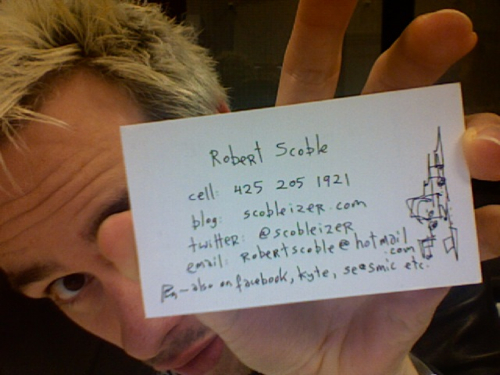 Robert Scoble
cell: 425 205 1921
blog: scobleizer.com
twitter: @scobleizer
email: Robertscoble@hotmail
.com
-also on facebook, kyte, seesmic etc.